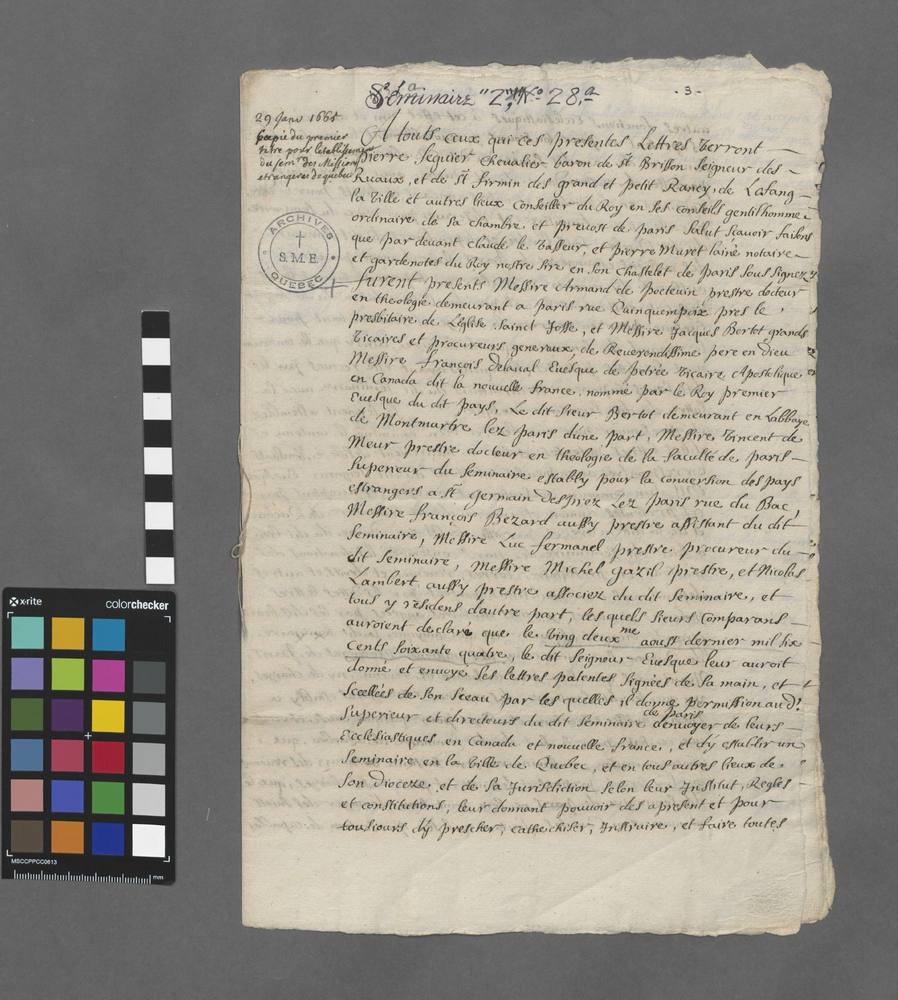 Séminaire "2", No. 28.a
- 3 -
29 Janv 1665
Coppie du premier
titre pour l'establissement
du sem.re des Missions
etrangeres de quebec
ARCHIVES
S.M.E.
QUEBEC
A touts ceux qui ces presentes Lettres verront
Pierre Seguier Chevalier baron de st Brisson Seigneur des
Ruaux, et de st firmin des grand et petit Rancy, de Lestang
la ville et autres lieux Conseiller du Roy en ses conseils gentilhomme
ordinaire de sa chambre et prevost de paris Salut scavoir faisons
que par devant claude le Vasseur, et pierre Muret laine notaire
et gardenotes du Roy nostre sire en son Chastelet de paris sous signez
furent presents Messire Armand de poiteuin prestre docteur
en theologie demeurant a paris rue Quinquempoix pres le
presbitaire de Leglise Sainct Josse, et Messire Jacques Bertot grands
Vicaires et procureurs generaux, de Reverendissime pere en Dieu
Messire françois delaval Evesque de petrée Vicaire Apostolique
en Canada dit la nouvelle france, nommé par le Roy premier
Evesque du dit pays, Le dit sieur Bertot demeurant en Labbaye
de Montmartre lez paris dune part, Messire Vincent de
Meur prestre docteur en theologie de la faculté de paris
superieur du seminaire estably pour la conversion des pays
estrangers a st germain Desprez Lez paris rue du Bac,
Messire françois Bezard aussy prestre assistant du dit
seminaire, Messire Luc fermanel prestre procureur du
dit seminaire, Messire Michel gazil prestre, et Nicolas
Lambert aussy prestre associez du dit seminaire, et
tous y residens dautre part, les quels sieurs comparans
auroient declaré que le ving deuxme aoust dernier mil six
cents soixante quatre, le dit seigneur Evesque leur auroit
donné et envoyé ses lettres patentes signées de sa main, et
scellées de son sceau par les quelles il donne permission aud.
superieur et directeurs du dit seminaire de paris denvoyer de leurs
Ecclesiastiques en Canada et nouvelle france, et dy establir un
seminaire en la ville de Quebec, et en tous autres lieux de
son dioceze et de sa Jurisdiction selon leur Institut, Regles
et constitutions, leur donnant pouvoir des apresent et pour
tousiours dy prescher, cathechiser, Instruire, et faire toutes